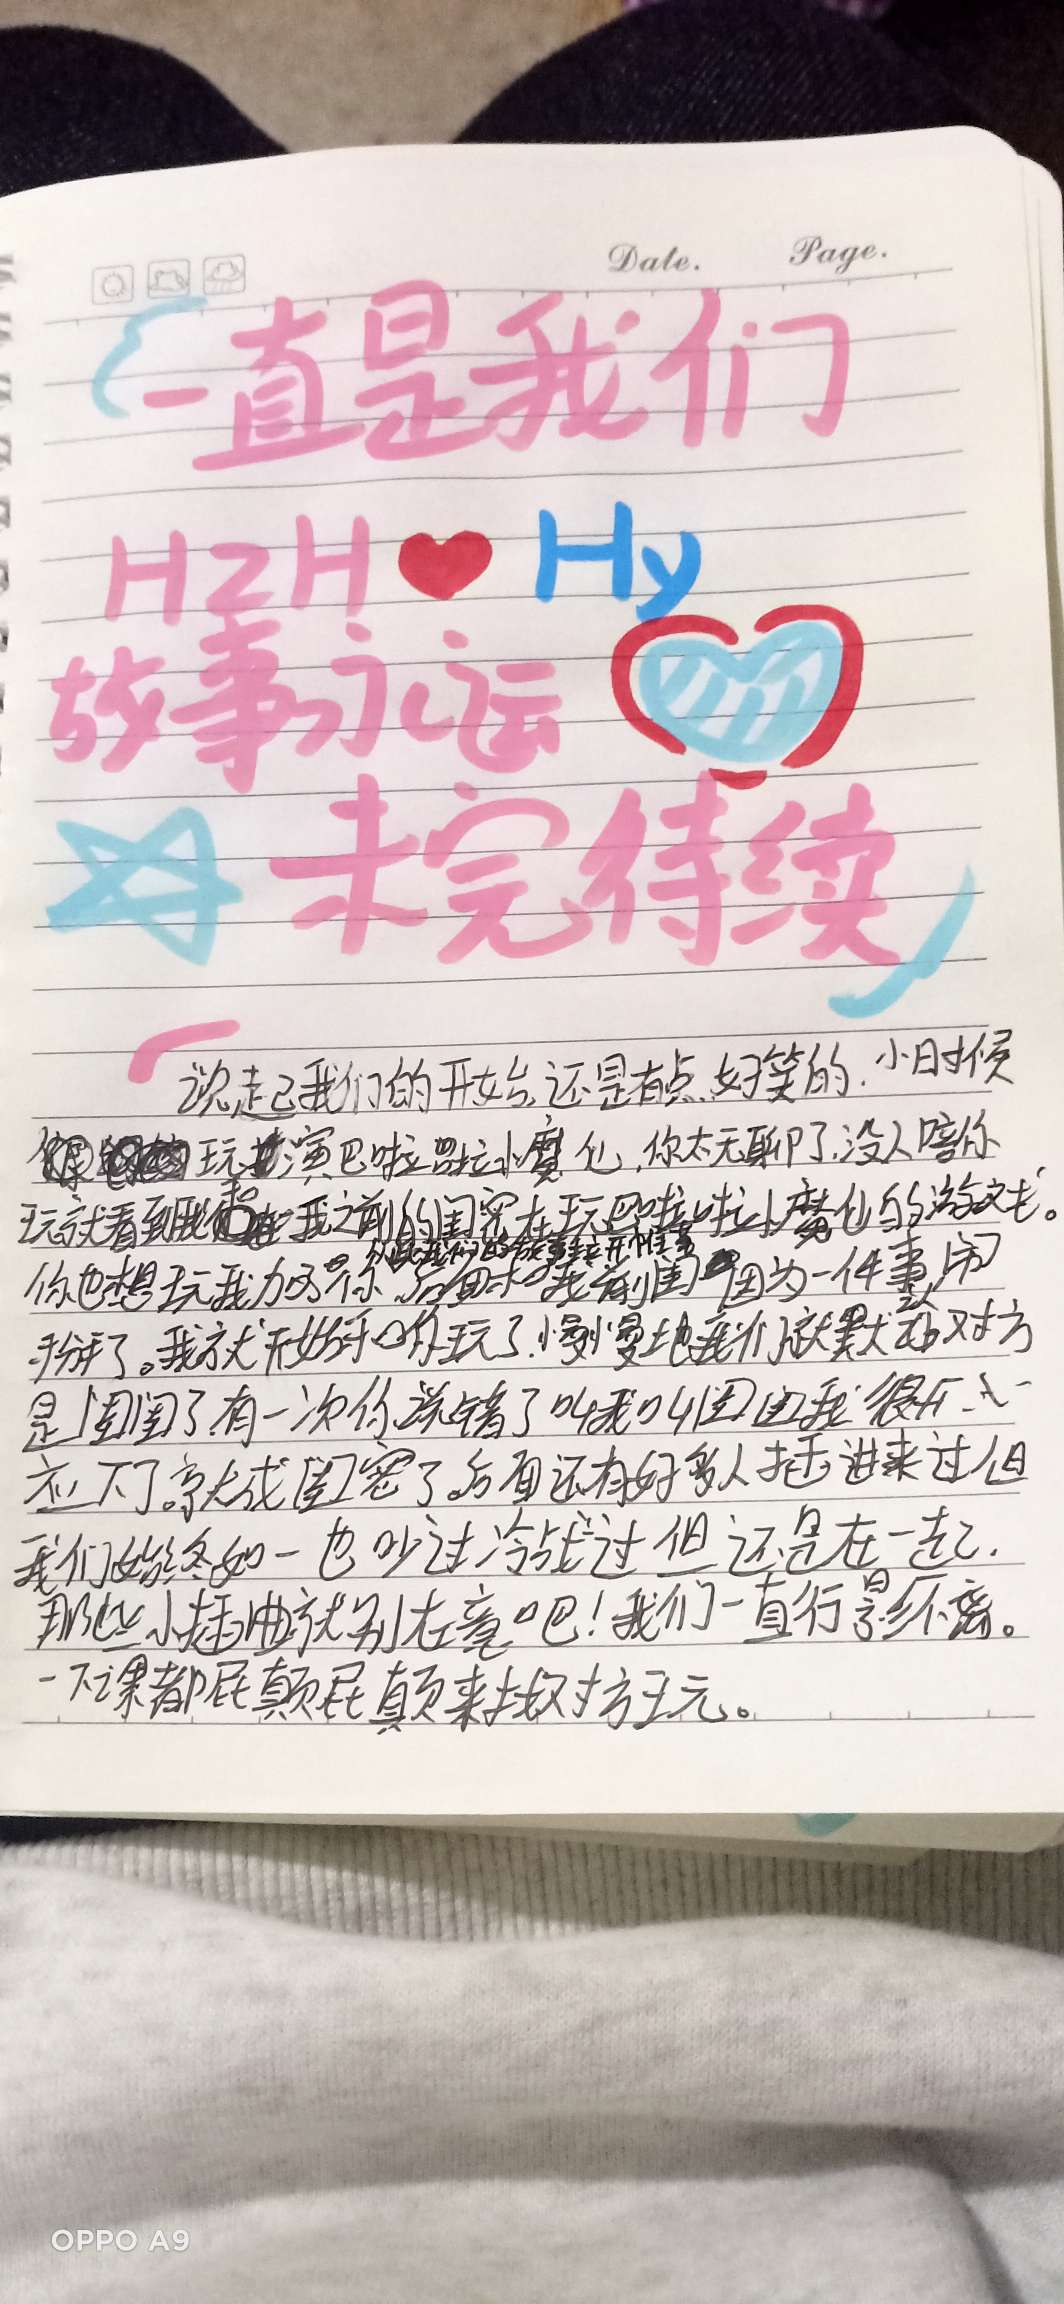 Date. Page.
一直是我们
HZH Hy
故事永远
未完待续
说起我们的开始,还是有点好笑的.小时候
玩扮演巴啦啦小魔仙,你太无聊了,没人陪你
玩就看到我和我之前的闺密在玩巴啦啦小魔仙的游戏。
从此我们的故事拉开帷幕
你也想玩我加了你.后面和我前闺因为一件事闹
掰了。我就开始和你玩了,慢慢地我们就默认对方
是闺闺了,有一次你说错了叫我叫闺密我很开心
应下了.就成闺密了。后面还有好多人插进来过但
我们始终如一也吵过冷战过但还是在一起.
那些小插曲就别在意吧!我们一直行影不离。
一下课都屁颠屁颠来找对方玩。
OPPO A9